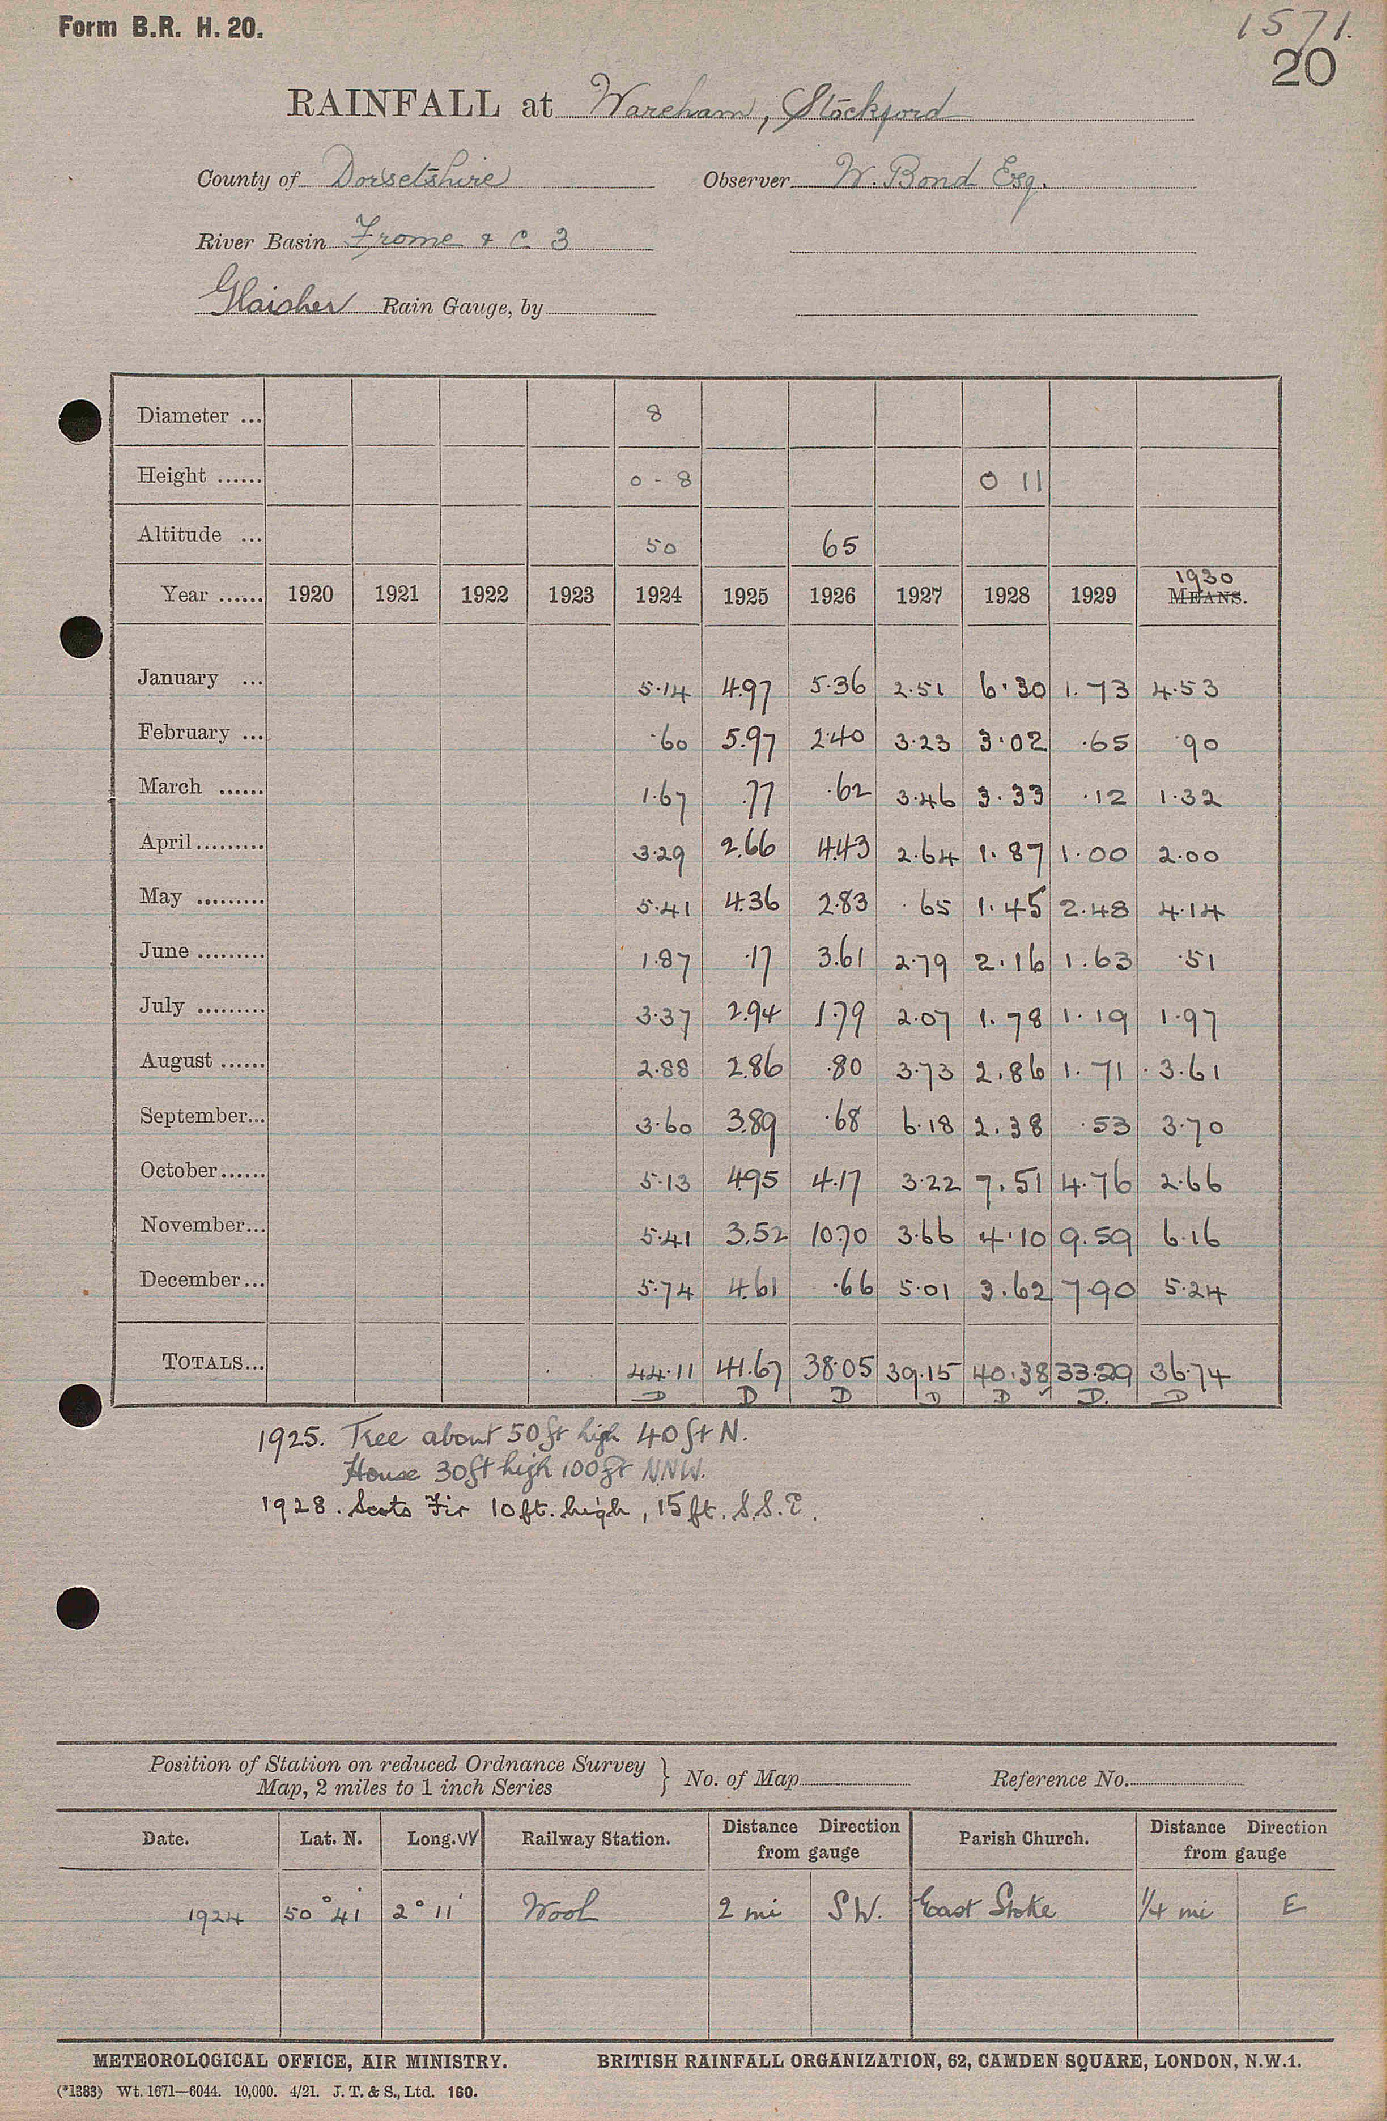 Form B.R. H. 20.
1571.
20
RAINFALL at Wareham, Stockford
County of Dorsetshire Observer W. Bond Esq.
River Basin Frome & C. 3
Glaisher Rain Gauge, by
Diameter ... 8
Height ...... 0 - 8 0 11
Altitude ... 50 65
Year ...... 1920 1921 1922 1923 1924 1925 1926 1927 1928 1929 1930 MEANS.
January ... 5.14 4.97 5.36 2.51 6.30 1.73 4.53
February ... .60 5.97 2.40 3.23 3.02 .65 .90
March ...... 1.67 .77 .62 3.46 3.33 .12 1.32
April ......... 3.29 2.66 4.43 2.64 1.87 1.00 2.00
May ......... 5.41 4.36 2.83 .65 1.45 2.48 4.14
June ......... 1.87 .17 3.61 2.79 2.16 1.63 .51
July ......... 3.37 2.94 1.79 2.07 1.78 1.19 1.97
August ...... 2.88 2.86 .80 3.73 2.86 1.71 3.61
September... 3.60 3.89 .68 6.18 2.38 .53 3.70
October...... 5.13 4.95 4.17 3.22 7.51 4.76 2.66
November... 5.41 3.52 10.70 3.66 4.10 9.59 6.16
December... 5.74 4.61 .66 5.01 3.62 7.90 5.24
TOTALS... 44.11 41.67 38.05 39.15 40.38 33.29 36.74
D D D D D D. D
1925. Tree about 50ft high 40ft N.
House 30ft high 100ft NNW.
1928. Scots Fir 10ft. high, 15ft. S.S.E.
Position of Station on reduced Ordnance Survey
Map, 2 miles to 1 inch Series } No. of Map Reference No.
Date. Lat. N. Long. W Railway Station. Distance Direction from gauge Parish Church. Distance Direction from gauge
1924 50° 41' 2° 11' Wool 2 mi SW. East Stoke 1/4 mi E
METEOROLOGICAL OFFICE, AIR MINISTRY. BRITISH RAINFALL ORGANIZATION, 62, CAMDEN SQUARE, LONDON, N.W.1.
(*1383) Wt. 1671—6044. 10,000. 4/21. J. T. & S., Ltd. 160.